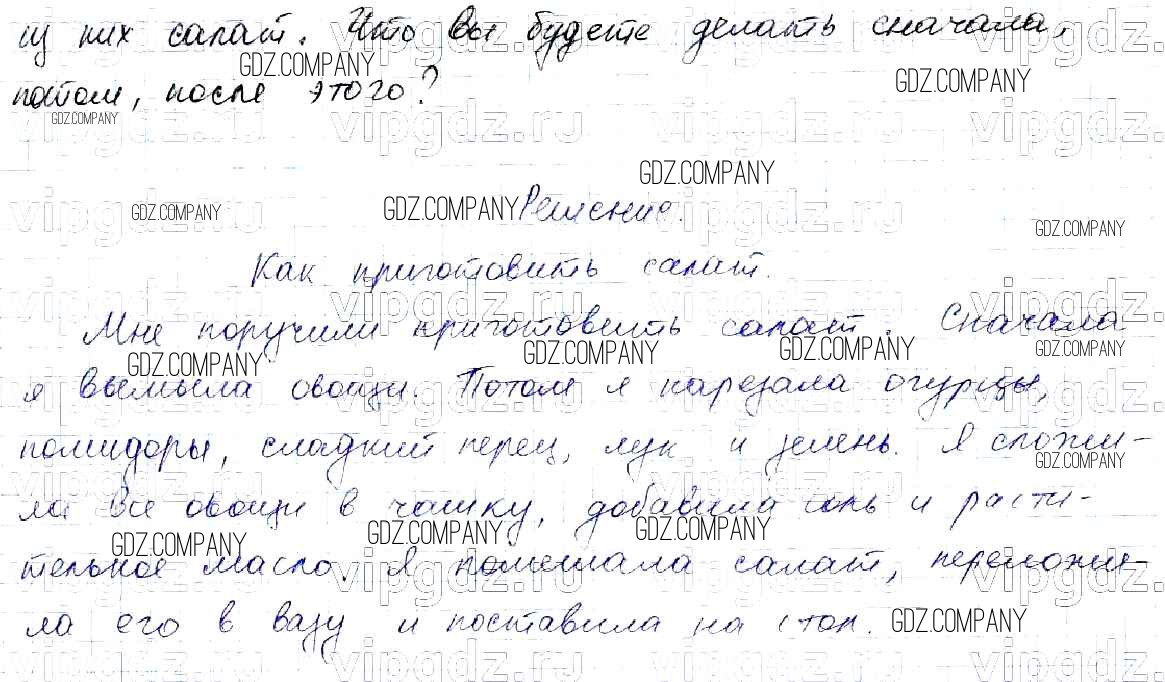 из них салат. Что вы будете делать сначала,
потом, после этого?
Решение.
Как приготовить салат.
Мне поручили приготовить салат. Сначала
я вымыла овощи. Потом я нарезала огурцы,
помидоры, сладкий перец, лук и зелень. Я сложи-
ла все овощи в чашку, добавила соль и расти-
тельное масло. Я помешала салат, переложи-
ла его в вазу и поставила на стол.